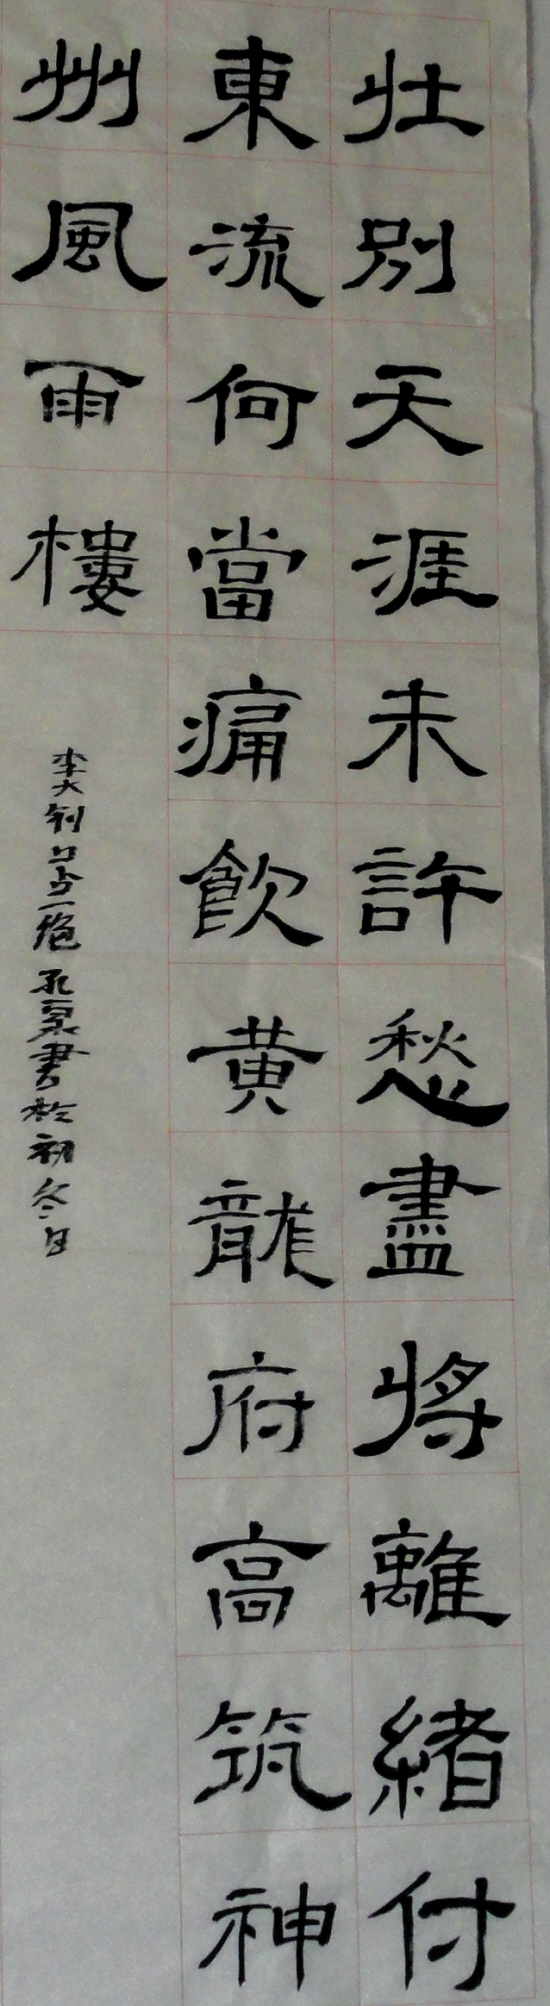 壯別天涯未許愁盡將離緒付
東流何當痛飲黃龍府高筑神
州風雨樓
李大釗口占一絕 孔泉書於初冬日